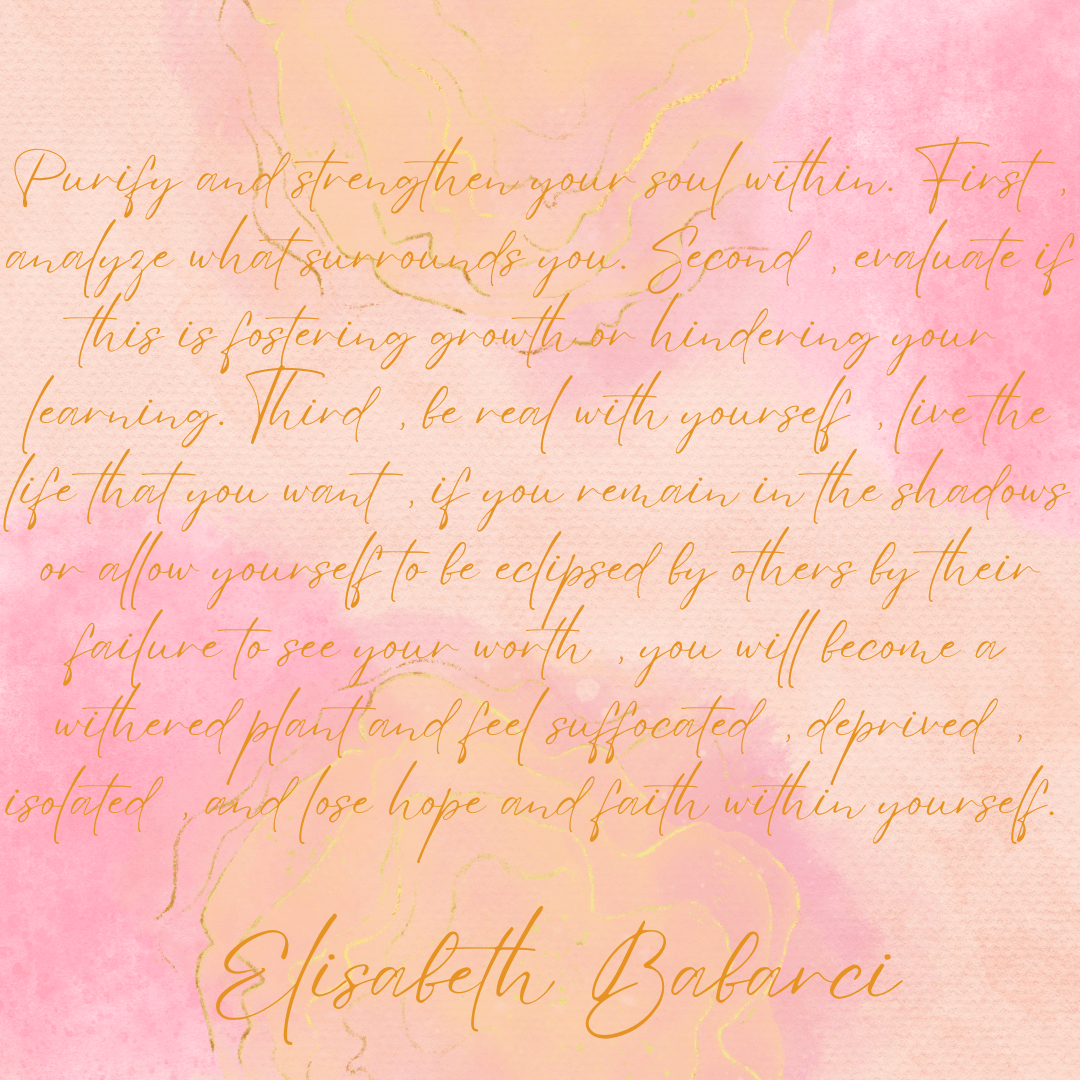 Purify and strengthen your soul within. First ,
analyze what surrounds you. Second , evaluate if
this is fostering growth or hindering your
learning. Third , be real with yourself , live the
life that you want , if you remain in the shadows
or allow yourself to be eclipsed by others by their
failure to see your worth , you will become a
withered plant and feel suffocated , deprived ,
isolated , and lose hope and faith within yourself.
Elisabeth Babarci